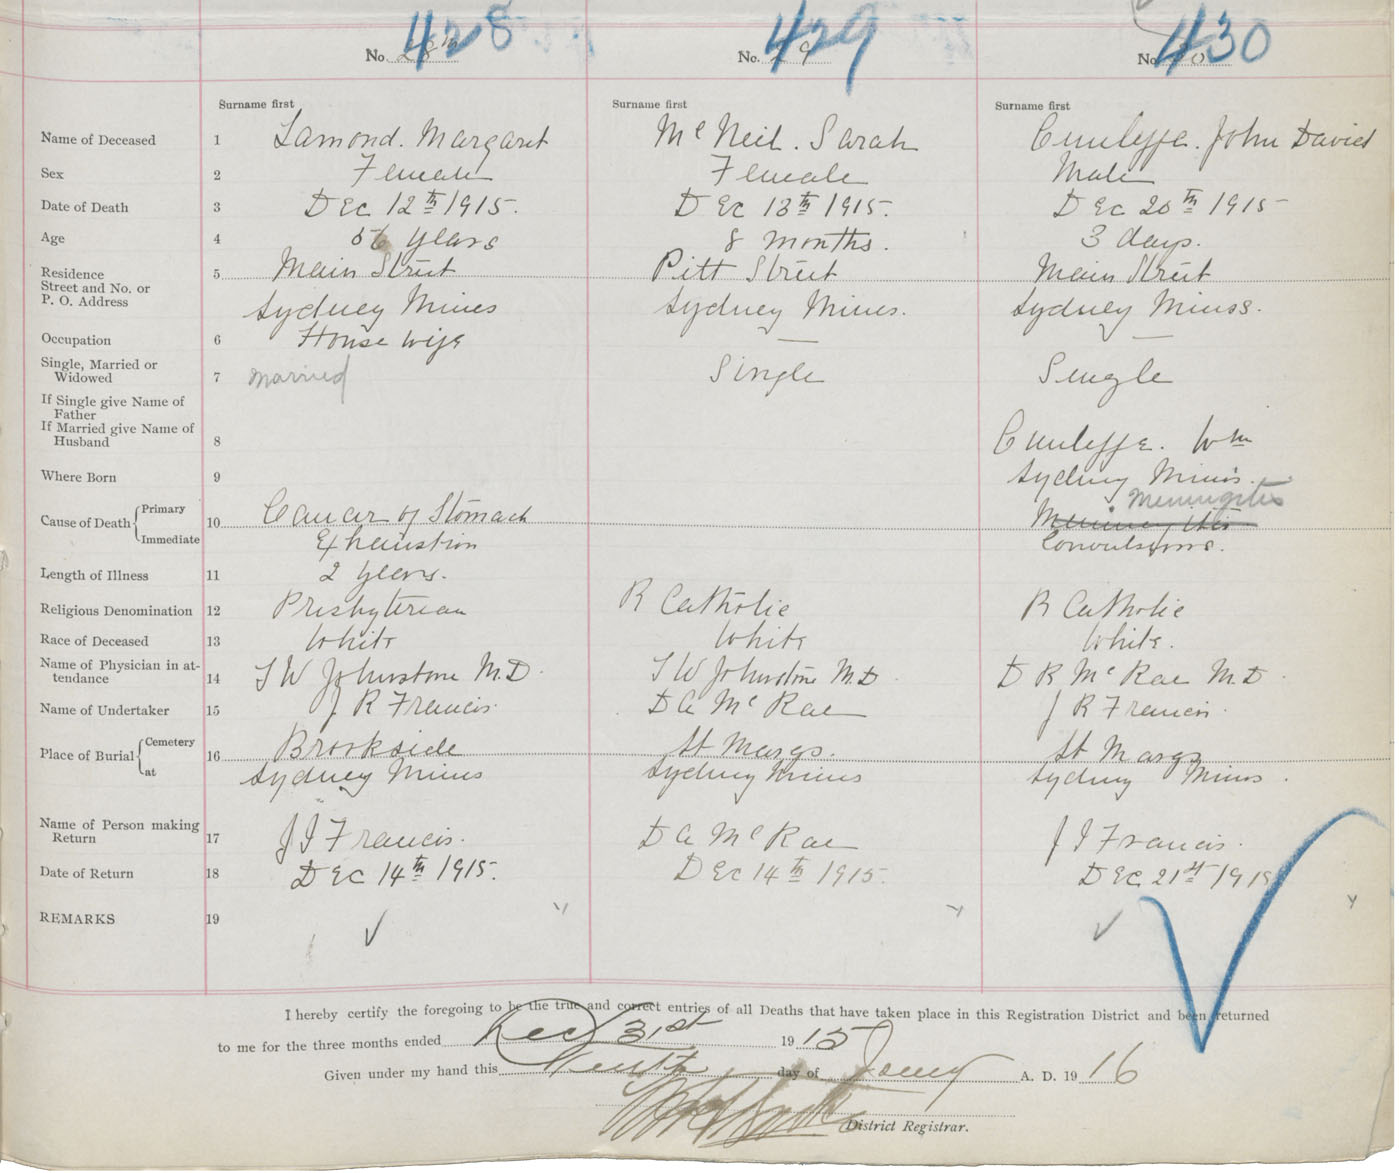 428 429 430
No. 28th No. 29 No. 30
Surname first Surname first Surname first
Name of Deceased 1 Lamond. Margaret McNeil. Sarah Cunliffe. John David
Sex 2 Female Female Male
Date of Death 3 Dec 12th 1915. Dec 13th 1915. Dec 20th 1915
Age 4 56 years 8 months. 3 days.
Residence 5 Main Street Pitt Street Main Street
Street and No. or
P. O. Address Sydney Mines Sydney Mines. Sydney Mines.
Occupation 6 House wife — —
Single, Married or
Widowed 7 married Single Single
If Single give Name of
Father
If Married give Name of
Husband 8 Cunliffe. Wm
Where Born 9 Sydney Mines.
Meningitis
Cause of Death Primary 10 Cancer of Stomach Meningitis
Immediate Exhaustion Convulsions.
Length of Illness 11 2 years.
Religious Denomination 12 Presbyterian R Catholic R Catholic
Race of Deceased 13 White White White.
Name of Physician in at-
tendance 14 T W Johnstone M.D. T W Johnstone M.D. D R McRae M.D.
Name of Undertaker 15 J R Francis. D A McRae J R Francis.
Place of Burial Cemetery 16 Brookside St Margs. St Margs
at Sydney Mines Sydney Mines Sydney Mines.
Name of Person making
Return 17 J J Francis. D A McRae J J Francis.
Date of Return 18 Dec 14th 1915. Dec 14th 1915. Dec 21st 1915
REMARKS 19
I hereby certify the foregoing to be the true and correct entries of all Deaths that have taken place in this Registration District and been returned
to me for the three months ended Dec 31st 1915
Given under my hand this day of Jany A. D. 1916
District Registrar.